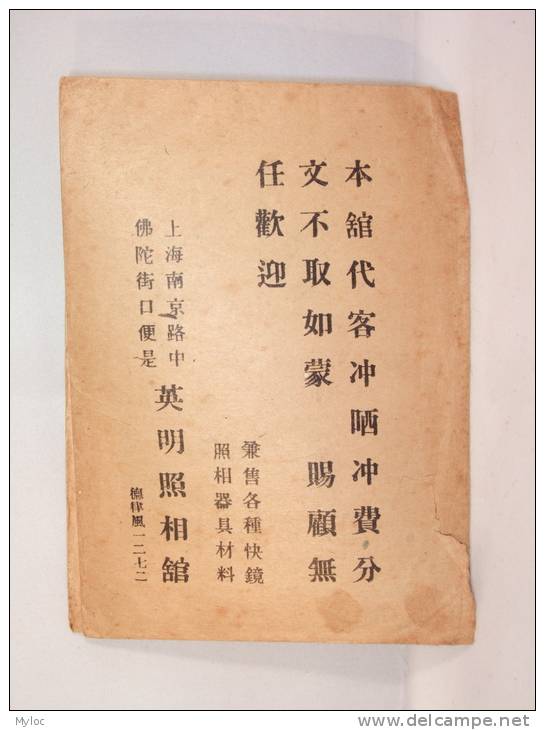 本舘代客冲晒冲費分
文不取如蒙　賜顧無
任歡迎
兼售各種快鏡
照相器具材料
上海南京路中
佛陀街口便是
英明照相舘
德律風一二七二
Myloc
delcampe.net